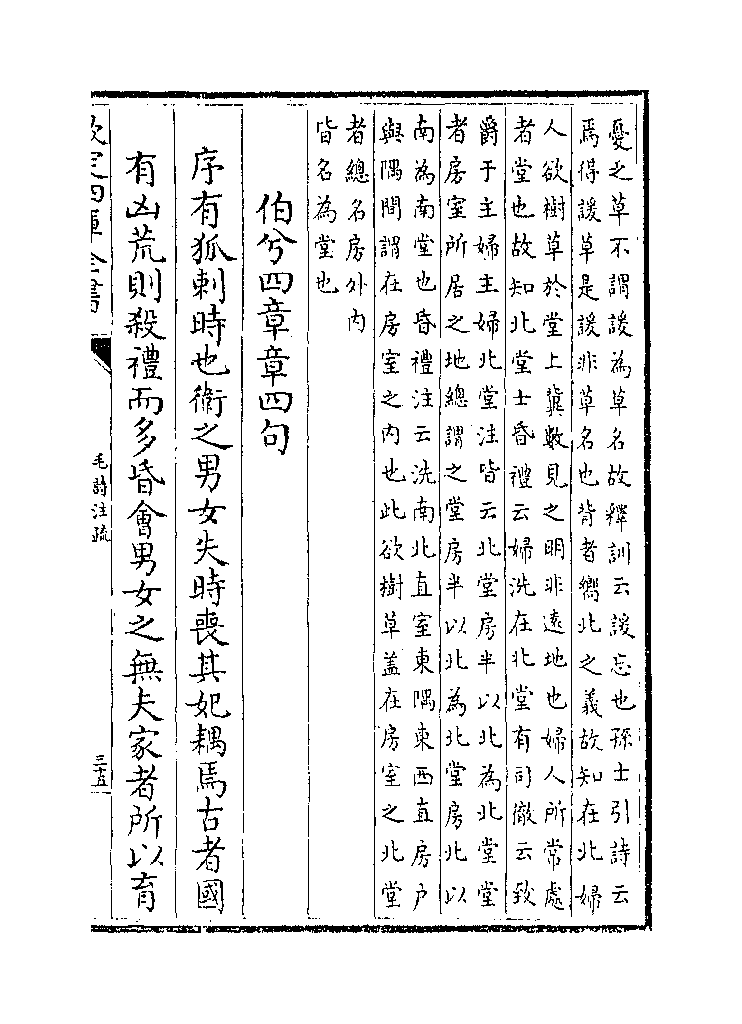 憂之草不謂諼為草名故釋訓云諼忘也孫士引詩云
焉得諼草是諼非草名也背者嚮北之義故知在北婦
人欲樹草於堂上冀數見之明非遠地也婦人所常處
者堂也故知北堂士昏禮云婦洗在北堂有司徹云致
爵于主婦主婦北堂注皆云北堂房半以北為北堂堂
者房室所居之地總謂之堂房半以北為北堂房北以
南為南堂也昏禮注云洗南北直室東隅東西直房戶
與隅間謂在房室之内也此欲樹草蓋在房室之北堂
者總名房外内
皆名為堂也
伯兮四章章四句
序有狐刺時也衛之男女失時喪其妃耦焉古者國
有凶荒則殺禮而多昏會男女之無夫家者所以育
欽定四庫全書
毛詩注疏
三十五